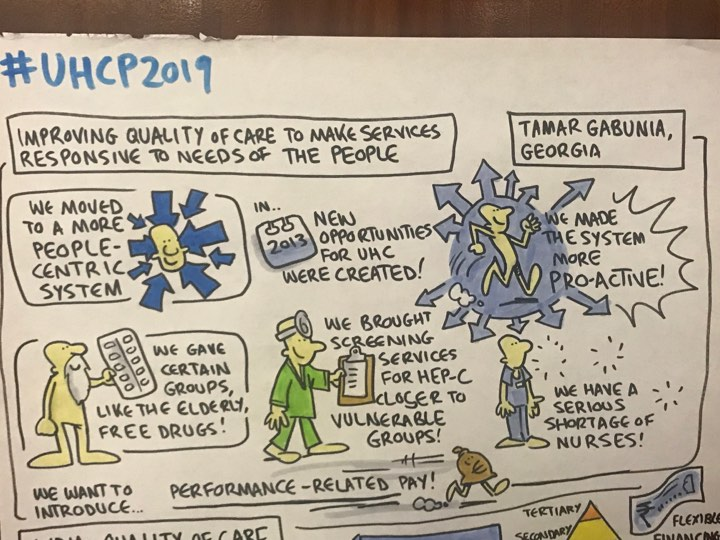 #UHCP2019
IMPROVING QUALITY OF CARE TO MAKE SERVICES
RESPONSIVE TO NEEDS OF THE PEOPLE
TAMAR GABUNIA,
GEORGIA
WE MOVED
TO A MORE
PEOPLE-
CENTRIC
SYSTEM
IN..
2013
NEW
OPPORTUNITIES
FOR UHC
WERE CREATED!
WE MADE
THE SYSTEM
MORE
PRO-ACTIVE!
WE GAVE
CERTAIN
GROUPS,
LIKE THE ELDERLY,
FREE DRUGS!
WE BROUGHT
SCREENING
SERVICES
FOR HEP-C
CLOSER TO
VULNERABLE
GROUPS!
WE HAVE A
SERIOUS
SHORTAGE OF
NURSES!
WE WANT TO
INTRODUCE...
PERFORMANCE-RELATED PAY!
QUALITY OF CARE
TERTIARY
SECONDARY
₹
FLEXIBLE
FINANCING